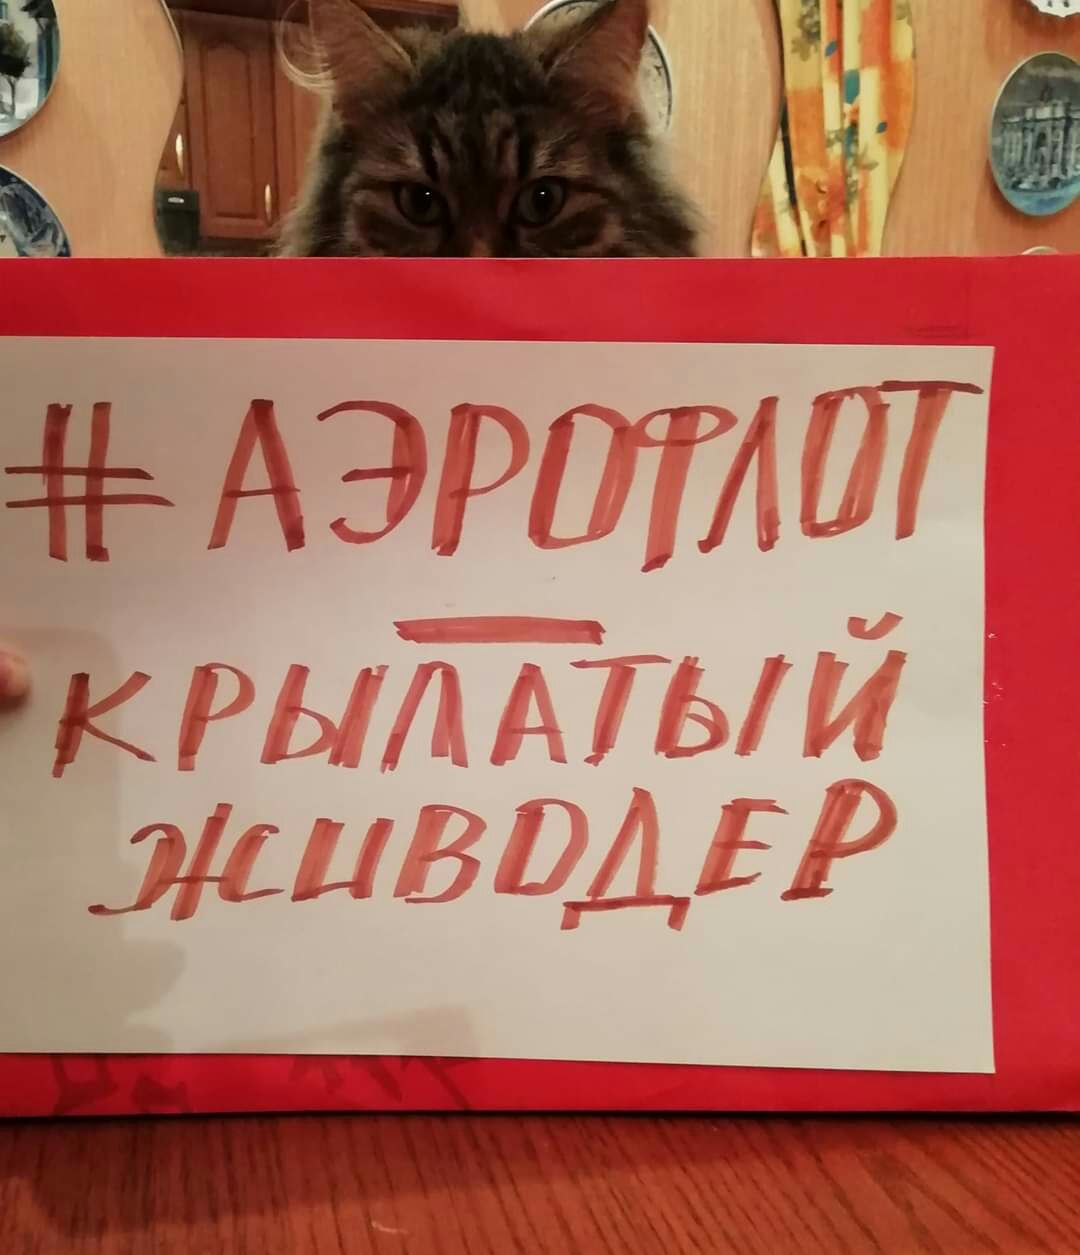 #АЭРОФЛОТ
—
КРЫЛАТЫЙ
ЖИВОДЕР